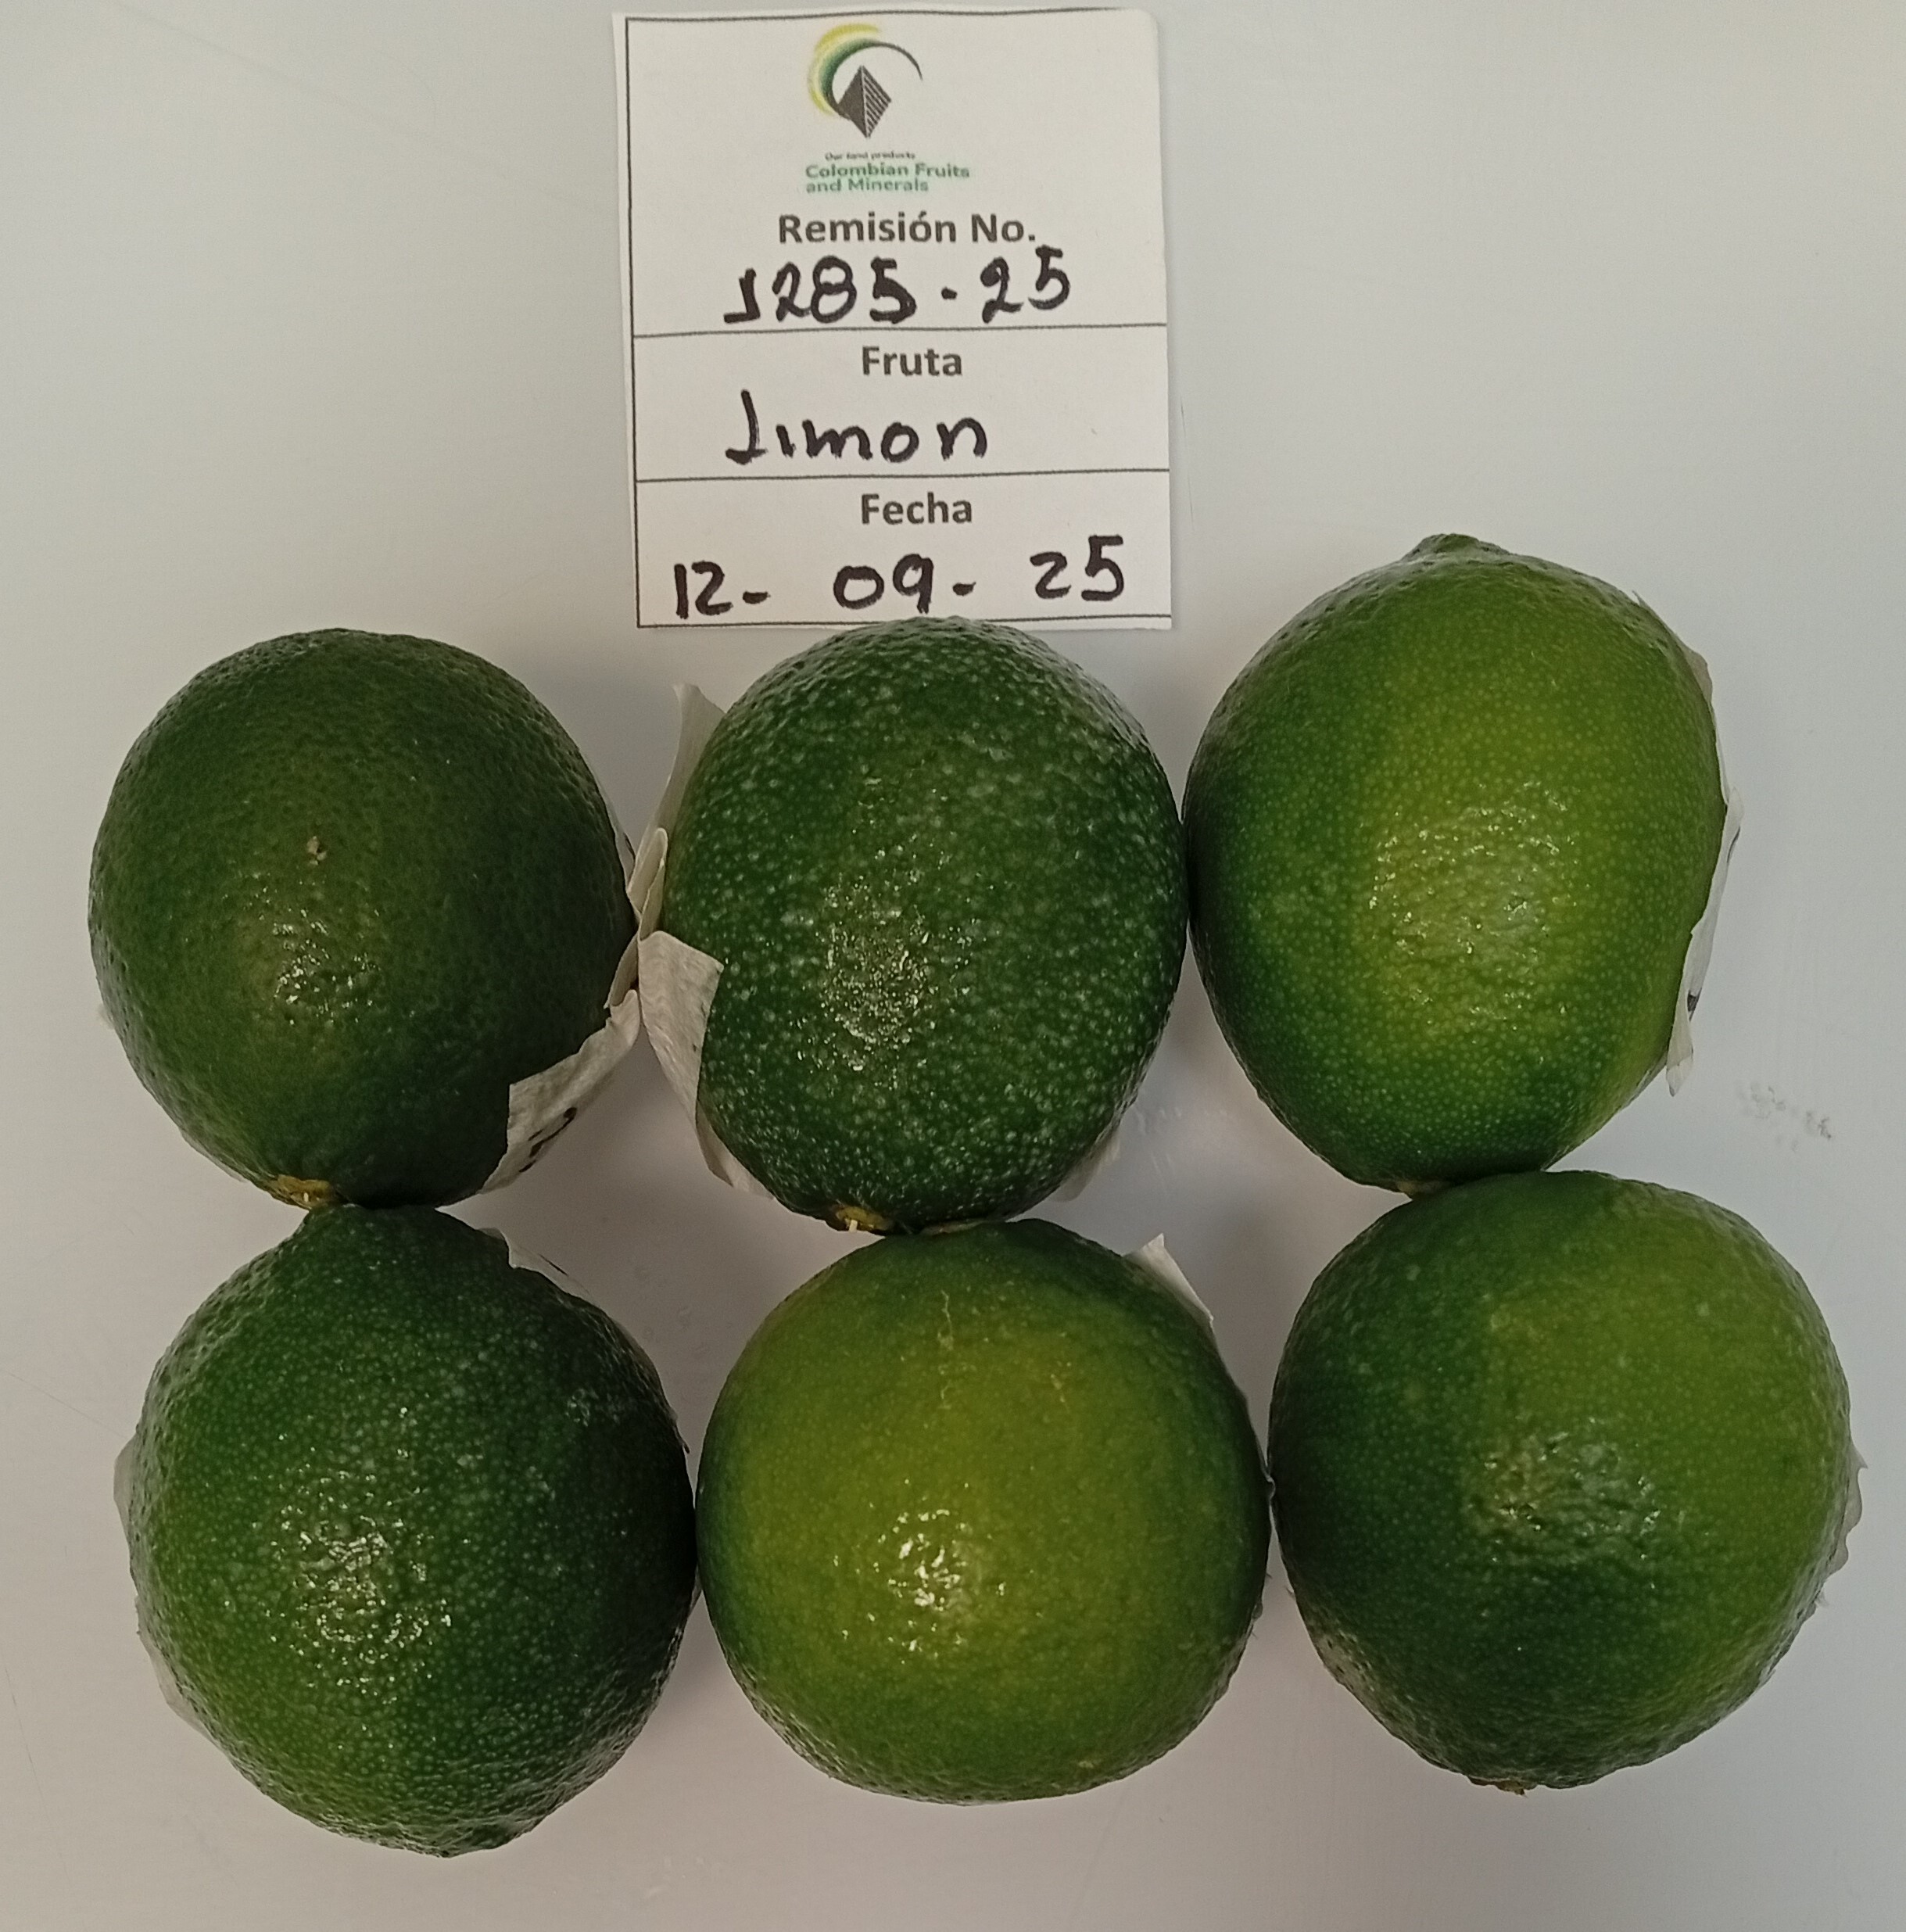 Our land products
Colombian Fruits
and Minerals
Remisión No.
1285-25
Fruta
Limon
Fecha
12- 09- 25